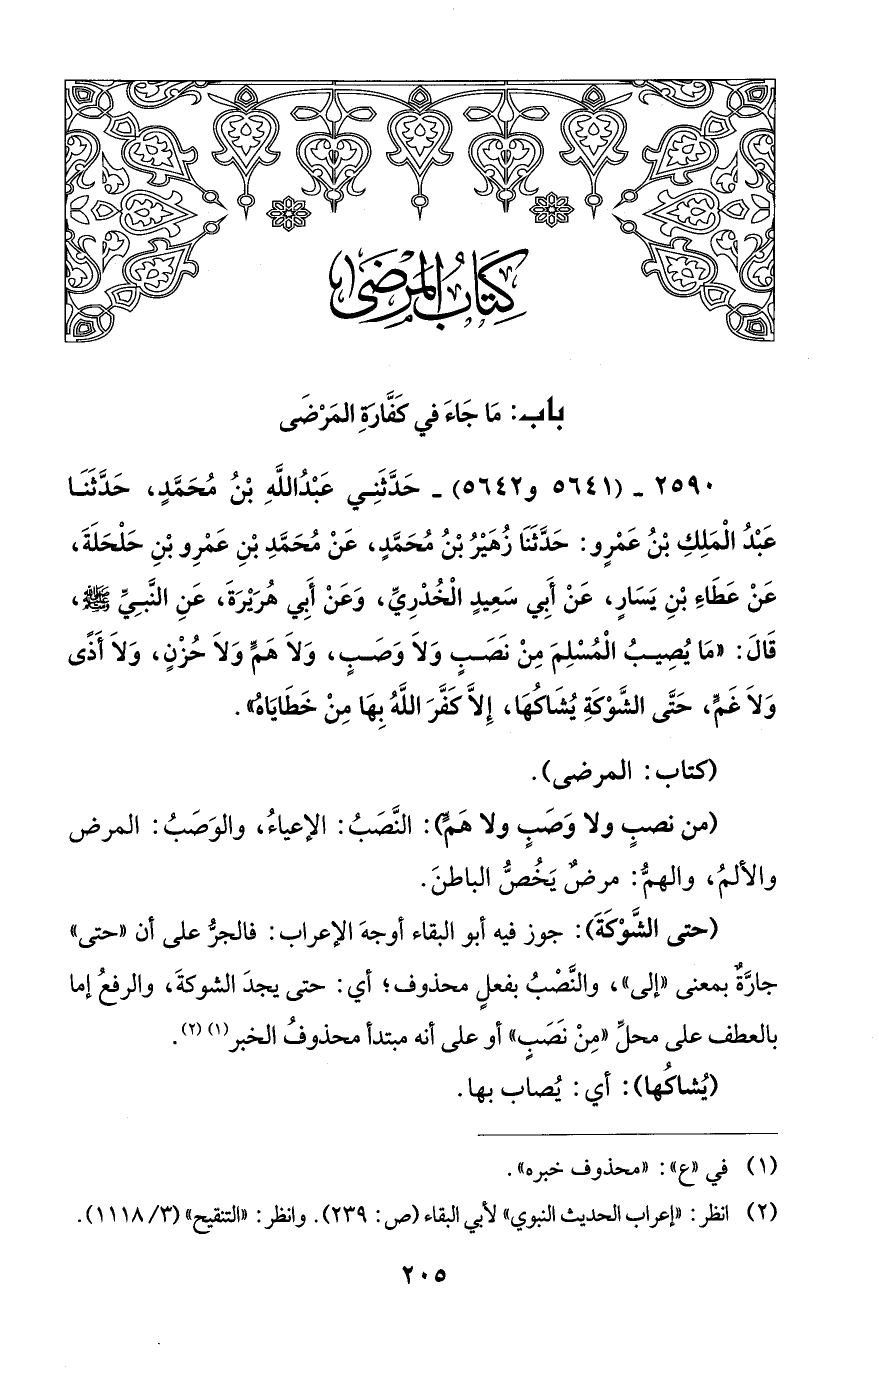 كِتَابُ المَرْضَى
باب: مَا جَاءَ في كَفَّارَةِ المَرْضَى
٢٥٩٠ ـ (٥٦٤١ و٥٦٤٢) ـ حَدَّثَنِي عَبْدُاللَّهِ بْنُ مُحَمَّدٍ، حَدَّثَنَا
عَبْدُ الْمَلِكِ بْنُ عَمْرٍو: حَدَّثَنَا زُهَيْرُ بْنُ مُحَمَّدٍ، عَنْ مُحَمَّدِ بْنِ عَمْرِو بْنِ حَلْحَلَةَ،
عَنْ عَطَاءِ بْنِ يَسَارٍ، عَنْ أَبِي سَعِيدٍ الْخُدْرِيِّ، وَعَنْ أَبِي هُرَيْرَةَ، عَنِ النَّبِيِّ ﷺ،
قَالَ: «مَا يُصِيبُ الْمُسْلِمَ مِنْ نَصَبٍ وَلاَ وَصَبٍ، وَلاَ هَمٍّ وَلاَ حُزْنٍ، وَلاَ أَذًى
وَلاَ غَمٍّ، حَتَّى الشَّوْكَةِ يُشَاكُهَا، إِلاَّ كَفَّرَ اللَّهُ بِهَا مِنْ خَطَايَاهُ».
(كتاب: المرضى).
(من نصبٍ ولا وَصَبٍ ولا هَمٍّ): النَّصَبُ: الإعياءُ، والوَصَبُ: المرض
والألمُ، والهمُّ: مرضٌ يَخُصُّ الباطنَ.
(حتى الشَّوْكَةَ): جوز فيه أبو البقاء أوجهَ الإعراب: فالجرُّ على أن «حتى»
جارَّةٌ بمعنى «إلى»، والنَّصْبُ بفعلٍ محذوف؛ أي: حتى يجدَ الشوكةَ، والرفعُ إما
بالعطف على محلِّ «مِنْ نَصَبٍ» أو على أنه مبتدأ محذوفُ الخبر(١)(٢).
(يُشاكُها): أي: يُصاب بها.
(١) في «ع»: «محذوف خبره».
(٢) انظر: «إعراب الحديث النبوي» لأبي البقاء (ص: ٢٣٩). وانظر: «التنقيح» (٣/ ١١١٨).
٢٠٥